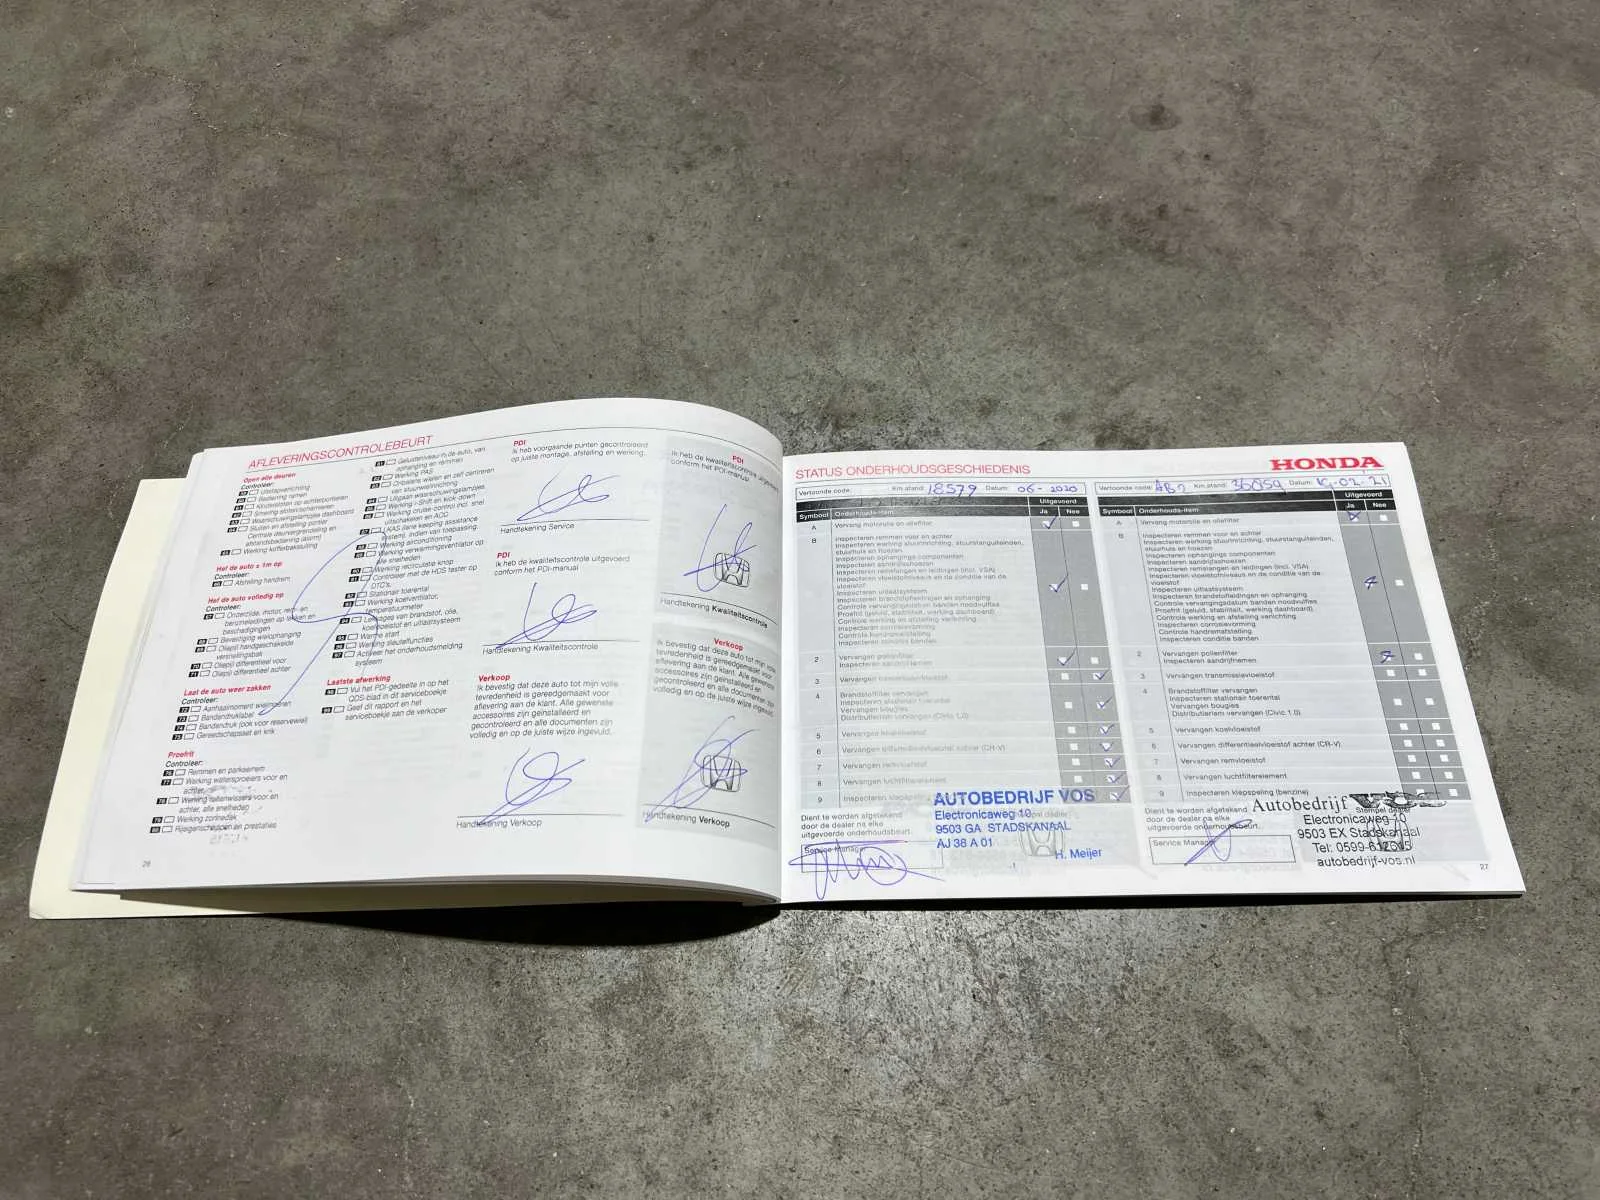 AFLEVERINGSCONTROLEBEURT
Open alle deuren
Controleer:
Uitstapverlichting
Bediening ramen
Kindersloten op achterportieren
Smering slot/scharnieren
Waarschuwingslampjes dashboard
Sluiten en afstelling portier
Centrale deurvergrendeling en
afstandsbediening (alarm)
Werking kofferbaksluiting
Hef de auto ± 1m op
Controleer:
Afstelling handrem
Hef de auto volledig op
Controleer:
Onderzijde, motor, rem- en
benzineleidingen op lekken en
beschadigingen
Bevestiging wielophanging
Oliepijl handgeschakelde
versnellingsbak
Oliepijl differentieel voor
Oliepijl differentieel achter
Laat de auto weer zakken
Controleer:
Aanhaalmoment wielmoeren
Bandendruklabel
Bandendruk (ook voor reservewiel)
Gereedschapset en krik
Proefrit
Controleer:
Remmen en parkeerrem
Werking watersproeiers voor en
achter
Werking ruitenwissers voor en
achter, alle snelheden
Werking zonnedak
Rijeigenschappen en prestaties
26
Geluidsniveau in de auto, van
ophanging en remmen
Werking PAS
Orbalans wielen en zelf centreren
van stuurwielinrichting
Uitgaan waarschuwingslampjes
Werking i-Shift en kick-down
Werking cruise-control incl. snel
uitschakelen en ACC
LKAS (lane keeping assistance
system), indien van toepassing
Werking airconditioning
Werking verwarmingsventilator op
alle snelheden
Werking recirculatie knop
Controleer met de HDS tester op
DTC's.
Stationair toerental
Werking koelventilator,
temperatuurmeter
Lekkages van brandstof, olie,
koelvloeistof en uitlaatsysteem
Warme start
Werking sleutelfuncties
Activeer het onderhoudsmelding
systeem
Laatste afwerking
Vul het PDI-gedeelte in op het
QDS-blad in dit serviceboekje
Geef dit rapport en het
serviceboekje aan de verkoper
PDI
Ik heb voorgaande punten gecontroleerd
op juiste montage, afstelling en werking.
Handtekening Service
PDI
Ik heb de kwaliteitscontrole uitgevoerd
conform het PDI-manual
Handtekening Kwaliteitscontrole
Verkoop
Ik bevestig dat deze auto tot mijn volle
tevredenheid is gereedgemaakt voor
aflevering aan de klant. Alle gewenste
accessoires zijn geïnstalleerd en
gecontroleerd en alle documenten zijn
volledig en op de juiste wijze ingevuld.
Handtekening Verkoop
PDI
Ik heb de kwaliteitscontrole uitgevoerd
conform het PDI-manual
Handtekening Kwaliteitscontrole
Verkoop
Ik bevestig dat deze auto tot mijn volle
tevredenheid is gereedgemaakt voor
aflevering aan de klant. Alle gewenste
accessoires zijn geïnstalleerd en
gecontroleerd en alle documenten zijn
volledig en op de juiste wijze ingevuld.
Handtekening Verkoop
STATUS ONDERHOUDSGESCHIEDENIS
HONDA
Vertoonde code: Km.stand: 18579 Datum: 06-2020
Uitgevoerd
Symbool Onderhouds-item Ja Nee
A Vervang motorolie en oliefilter
B Inspecteren remmen voor en achter
Inspecteren werking stuurinrichting, stuurstangeinden,
stuurhuis en hoezen
Inspecteren ophangings componenten
Inspecteren aandrijfashoezen
Inspecteren remslangen en leidingen (incl. VSA)
Inspecteren vloeistofniveaus en de conditie van de
vloeistof
Inspecteren uitlaatsysteem
Inspecteren brandstofleidingen en ophanging
Controle vervangingsdatum banden noodvulfles
Proefrit (geluid, stabiliteit, werking dashboard)
Controle werking en afstelling verlichting
Inspecteren corrosievorming
Controle handremafstelling
Inspecteren conditie banden
2 Vervangen pollenfilter
Inspecteren aandrijfriemen
3 Vervangen transmissievloeistof
4 Brandstoffilter vervangen
Inspecteren stationair toerental
Vervangen bougies
Distributieriem vervangen (Civic 1.0)
5 Vervangen koelvloeistof
6 Vervangen differentieelvloeistof achter (CR-V)
7 Vervangen remvloeistof
8 Vervangen luchtfilterelement
9 Inspecteren klepspeling
Dient te worden afgetekend
door de dealer na elke
uitgevoerde onderhoudsbeurt.
Service Manager
AUTOBEDRIJF VOS
Electronicaweg 10
9503 GA STADSKANAAL
AJ 38 A 01
H. Meijer
Vertoonde code: AB2 Km.stand: 36059 Datum: 16-02-21
Uitgevoerd
Symbool Onderhouds-item Ja Nee
A Vervang motorolie en oliefilter
B Inspecteren remmen voor en achter
Inspecteren werking stuurinrichting, stuurstangeinden,
stuurhuis en hoezen
Inspecteren ophangings componenten
Inspecteren aandrijfashoezen
Inspecteren remslangen en leidingen (incl. VSA)
Inspecteren vloeistofniveaus en de conditie van de
vloeistof
Inspecteren uitlaatsysteem
Inspecteren brandstofleidingen en ophanging
Controle vervangingsdatum banden noodvulfles
Proefrit (geluid, stabiliteit, werking dashboard)
Controle werking en afstelling verlichting
Inspecteren corrosievorming
Controle handremafstelling
Inspecteren conditie banden
2 Vervangen pollenfilter
Inspecteren aandrijfriemen
3 Vervangen transmissievloeistof
4 Brandstoffilter vervangen
Inspecteren stationair toerental
Vervangen bougies
Distributieriem vervangen (Civic 1.0)
5 Vervangen koelvloeistof
6 Vervangen differentieelvloeistof achter (CR-V)
7 Vervangen remvloeistof
8 Vervangen luchtfilterelement
9 Inspecteren klepspeling (benzine)
Dient te worden afgetekend
door de dealer na elke
uitgevoerde onderhoudsbeurt.
Service Manager
Stempel dealer
Autobedrijf VOS
Electronicaweg 10
9503 EX Stadskanaal
Tel: 0599-612015
autobedrijf-vos.nl
27